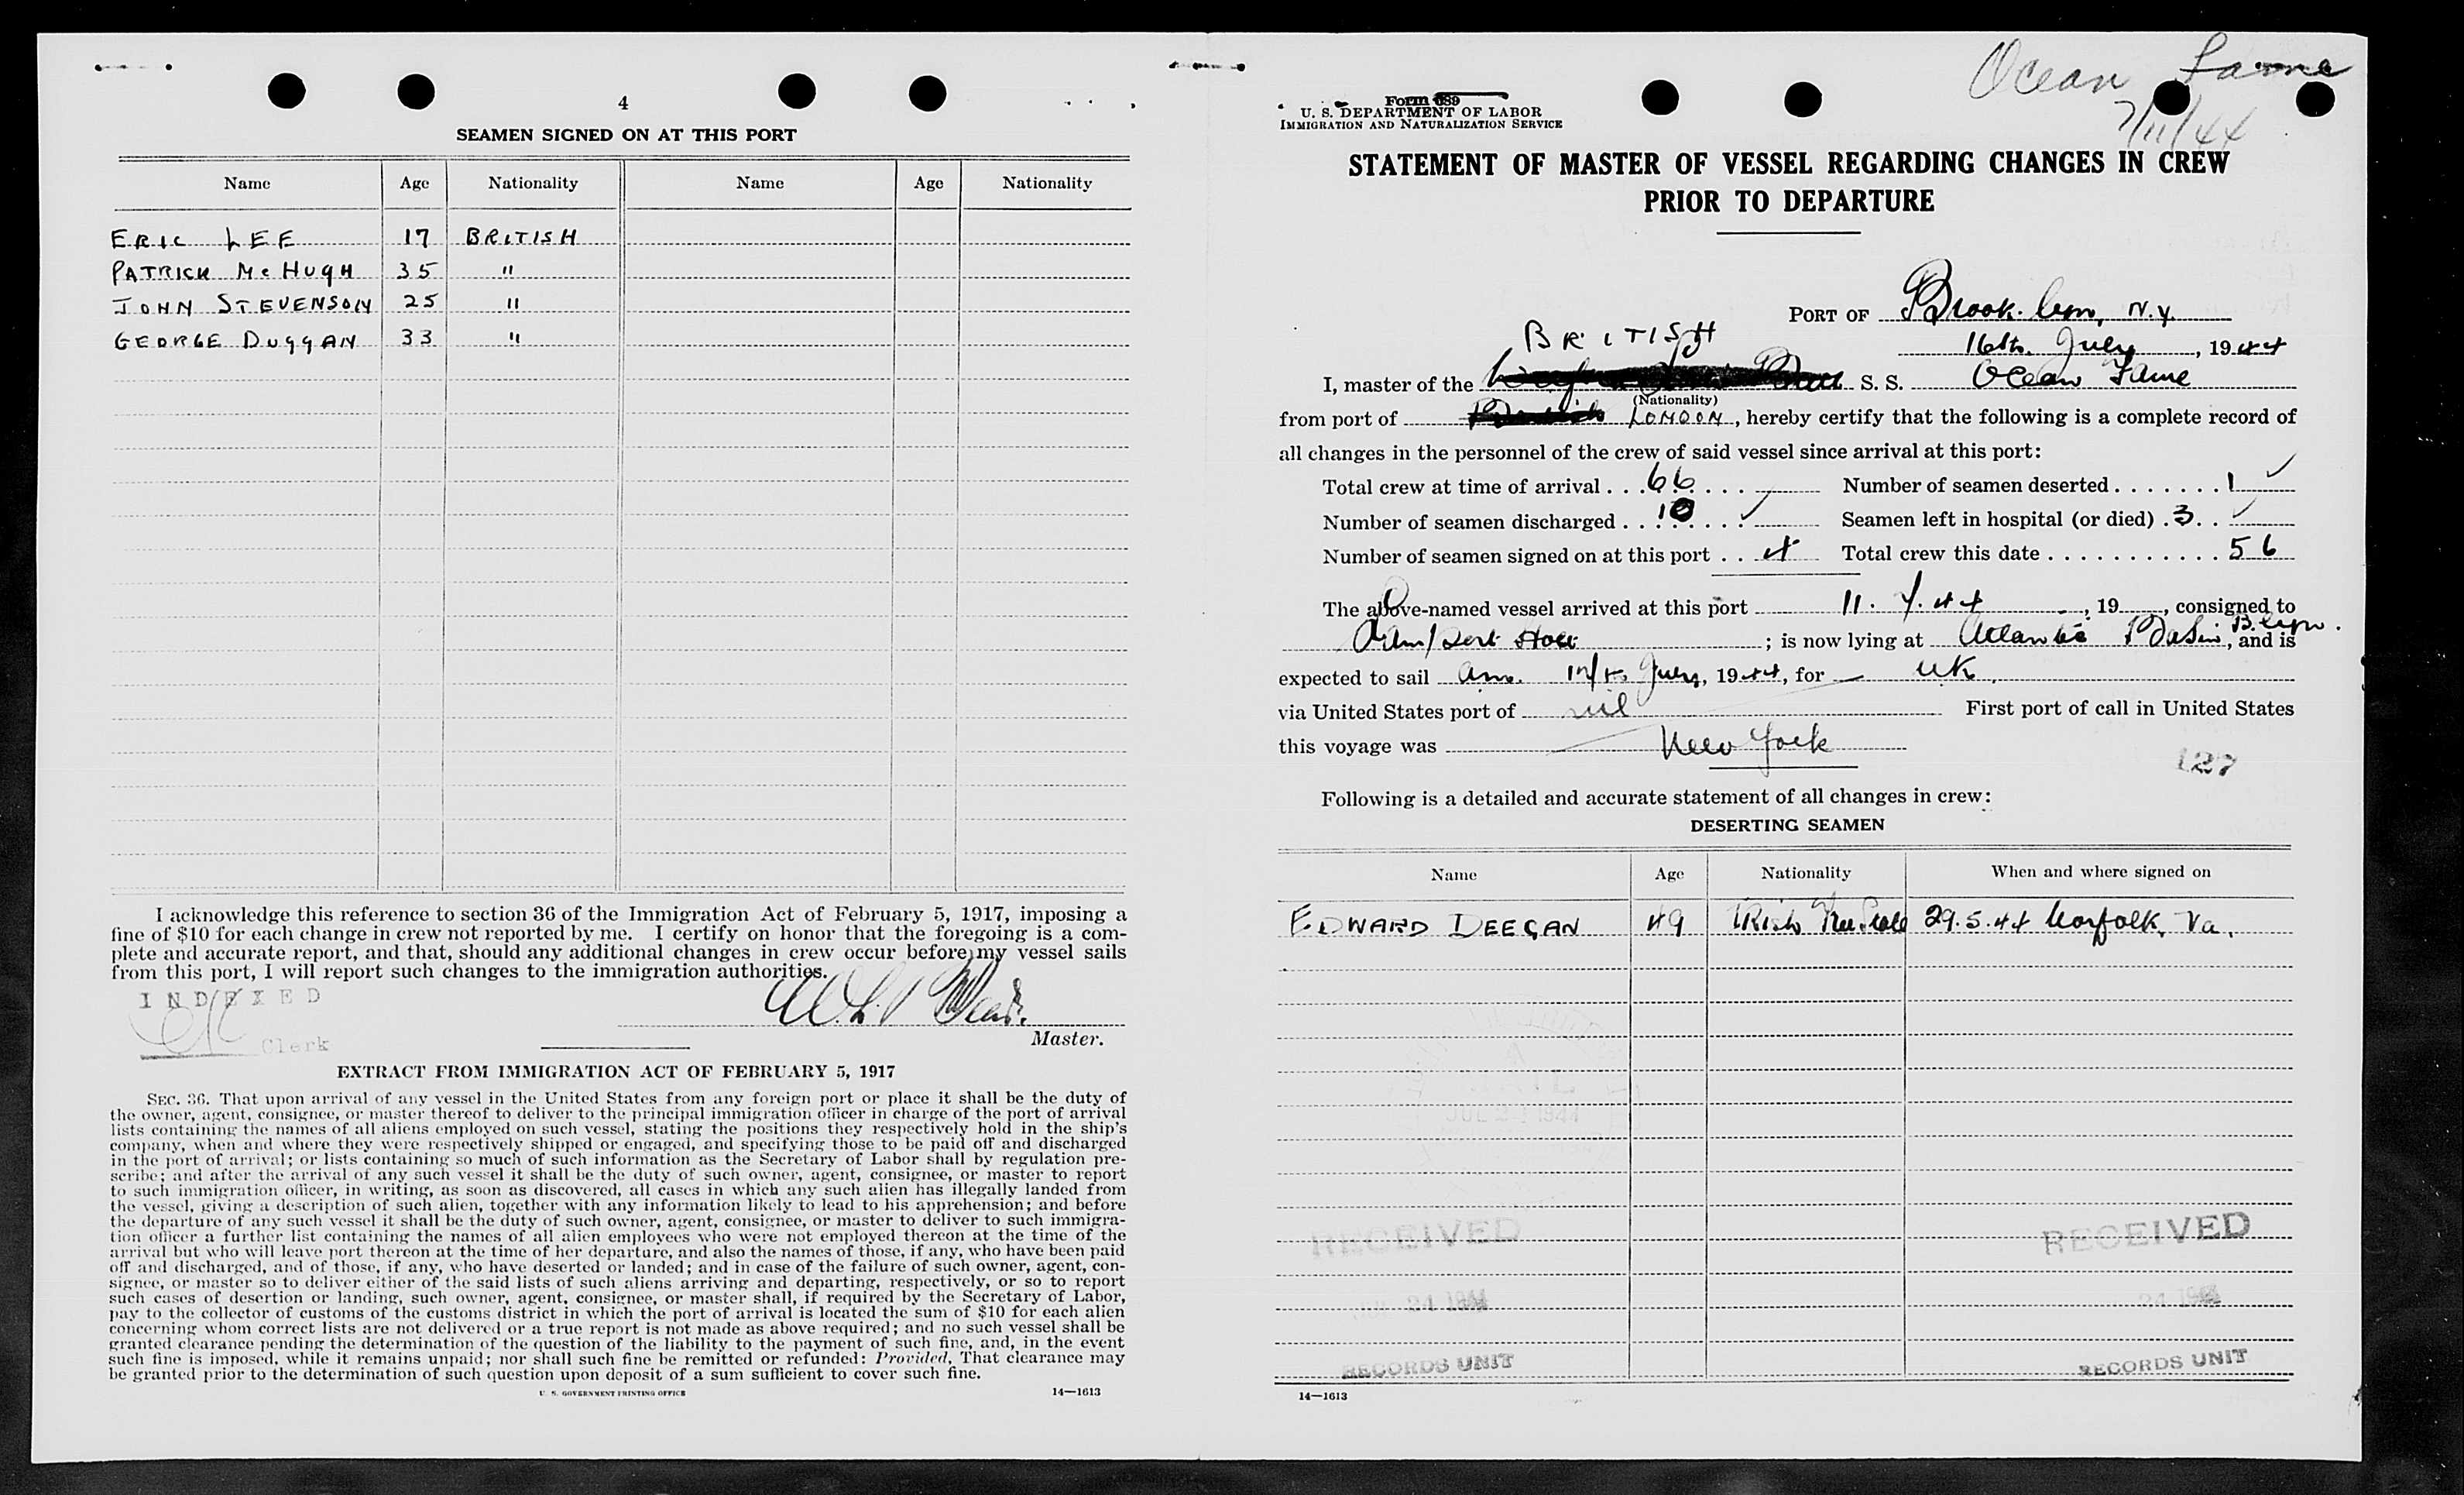 4
SEAMEN SIGNED ON AT THIS PORT
Name Age Nationality Name Age Nationality
ERIC LEE 17 BRITISH
PATRICK McHUGH 35 "
JOHN STEVENSON 25 "
GEORGE DUGGAN 33 "
I acknowledge this reference to section 36 of the Immigration Act of February 5, 1917, imposing a
fine of $10 for each change in crew not reported by me. I certify on honor that the foregoing is a com-
plete and accurate report, and that, should any additional changes in crew occur before my vessel sails
from this port, I will report such changes to the immigration authorities.
INDEXED
Clerk
Master.
EXTRACT FROM IMMIGRATION ACT OF FEBRUARY 5, 1917
SEC. 36. That upon arrival of any vessel in the United States from any foreign port or place it shall be the duty of
the owner, agent, consignee, or master thereof to deliver to the principal immigration officer in charge of the port of arrival
lists containing the names of all aliens employed on such vessel, stating the positions they respectively hold in the ship's
company, when and where they were respectively shipped or engaged, and specifying those to be paid off and discharged
in the port of arrival; or lists containing so much of such information as the Secretary of Labor shall by regulation pre-
scribe; and after the arrival of any such vessel it shall be the duty of such owner, agent, consignee, or master to report
to such immigration officer, in writing, as soon as discovered, all cases in which any such alien has illegally landed from
the vessel, giving a description of such alien, together with any information likely to lead to his apprehension; and before
the departure of any such vessel it shall be the duty of such owner, agent, consignee, or master to deliver to such immigra-
tion officer a further list containing the names of all alien employees who were not employed thereon at the time of the
arrival but who will leave port thereon at the time of her departure, and also the names of those, if any, who have been paid
off and discharged, and of those, if any, who have deserted or landed; and in case of the failure of such owner, agent, con-
signee, or master so to deliver either of the said lists of such aliens arriving and departing, respectively, or so to report
such cases of desertion or landing, such owner, agent, consignee, or master shall, if required by the Secretary of Labor,
pay to the collector of customs of the customs district in which the port of arrival is located the sum of $10 for each alien
concerning whom correct lists are not delivered or a true report is not made as above required; and no such vessel shall be
granted clearance pending the determination of the question of the liability to the payment of such fine, and, in the event
such fine is imposed, while it remains unpaid; nor shall such fine be remitted or refunded: Provided, That clearance may
be granted prior to the determination of such question upon deposit of a sum sufficient to cover such fine.
U. S. GOVERNMENT PRINTING OFFICE 14—1613
Ocean Fame
7/11/44
Form 689
U. S. DEPARTMENT OF LABOR
IMMIGRATION AND NATURALIZATION SERVICE
STATEMENT OF MASTER OF VESSEL REGARDING CHANGES IN CREW
PRIOR TO DEPARTURE
PORT OF Brooklyn, N.Y.
16th July, 1944
BRITISH
I, master of the S. S. Ocean Fame
(Nationality)
from port of LONDON, hereby certify that the following is a complete record of
all changes in the personnel of the crew of said vessel since arrival at this port:
Total crew at time of arrival 66 Number of seamen deserted 1
Number of seamen discharged 10 Seamen left in hospital (or died) 3
Number of seamen signed on at this port 4 Total crew this date 56
The above-named vessel arrived at this port 11.7.44, 19 , consigned to
; is now lying at Atlantic Basin, Bklyn. and is
expected to sail am. July, 1944, for UK
via United States port of nil First port of call in United States
this voyage was New York
127
Following is a detailed and accurate statement of all changes in crew:
DESERTING SEAMEN
Name Age Nationality When and where signed on
EDWARD DEEGAN 49 Irish Free State 29.5.44 Norfolk, Va.
JUL 21 1944
RECEIVED RECEIVED
24 1944 24 1944
RECORDS UNIT RECORDS UNIT
14—1613